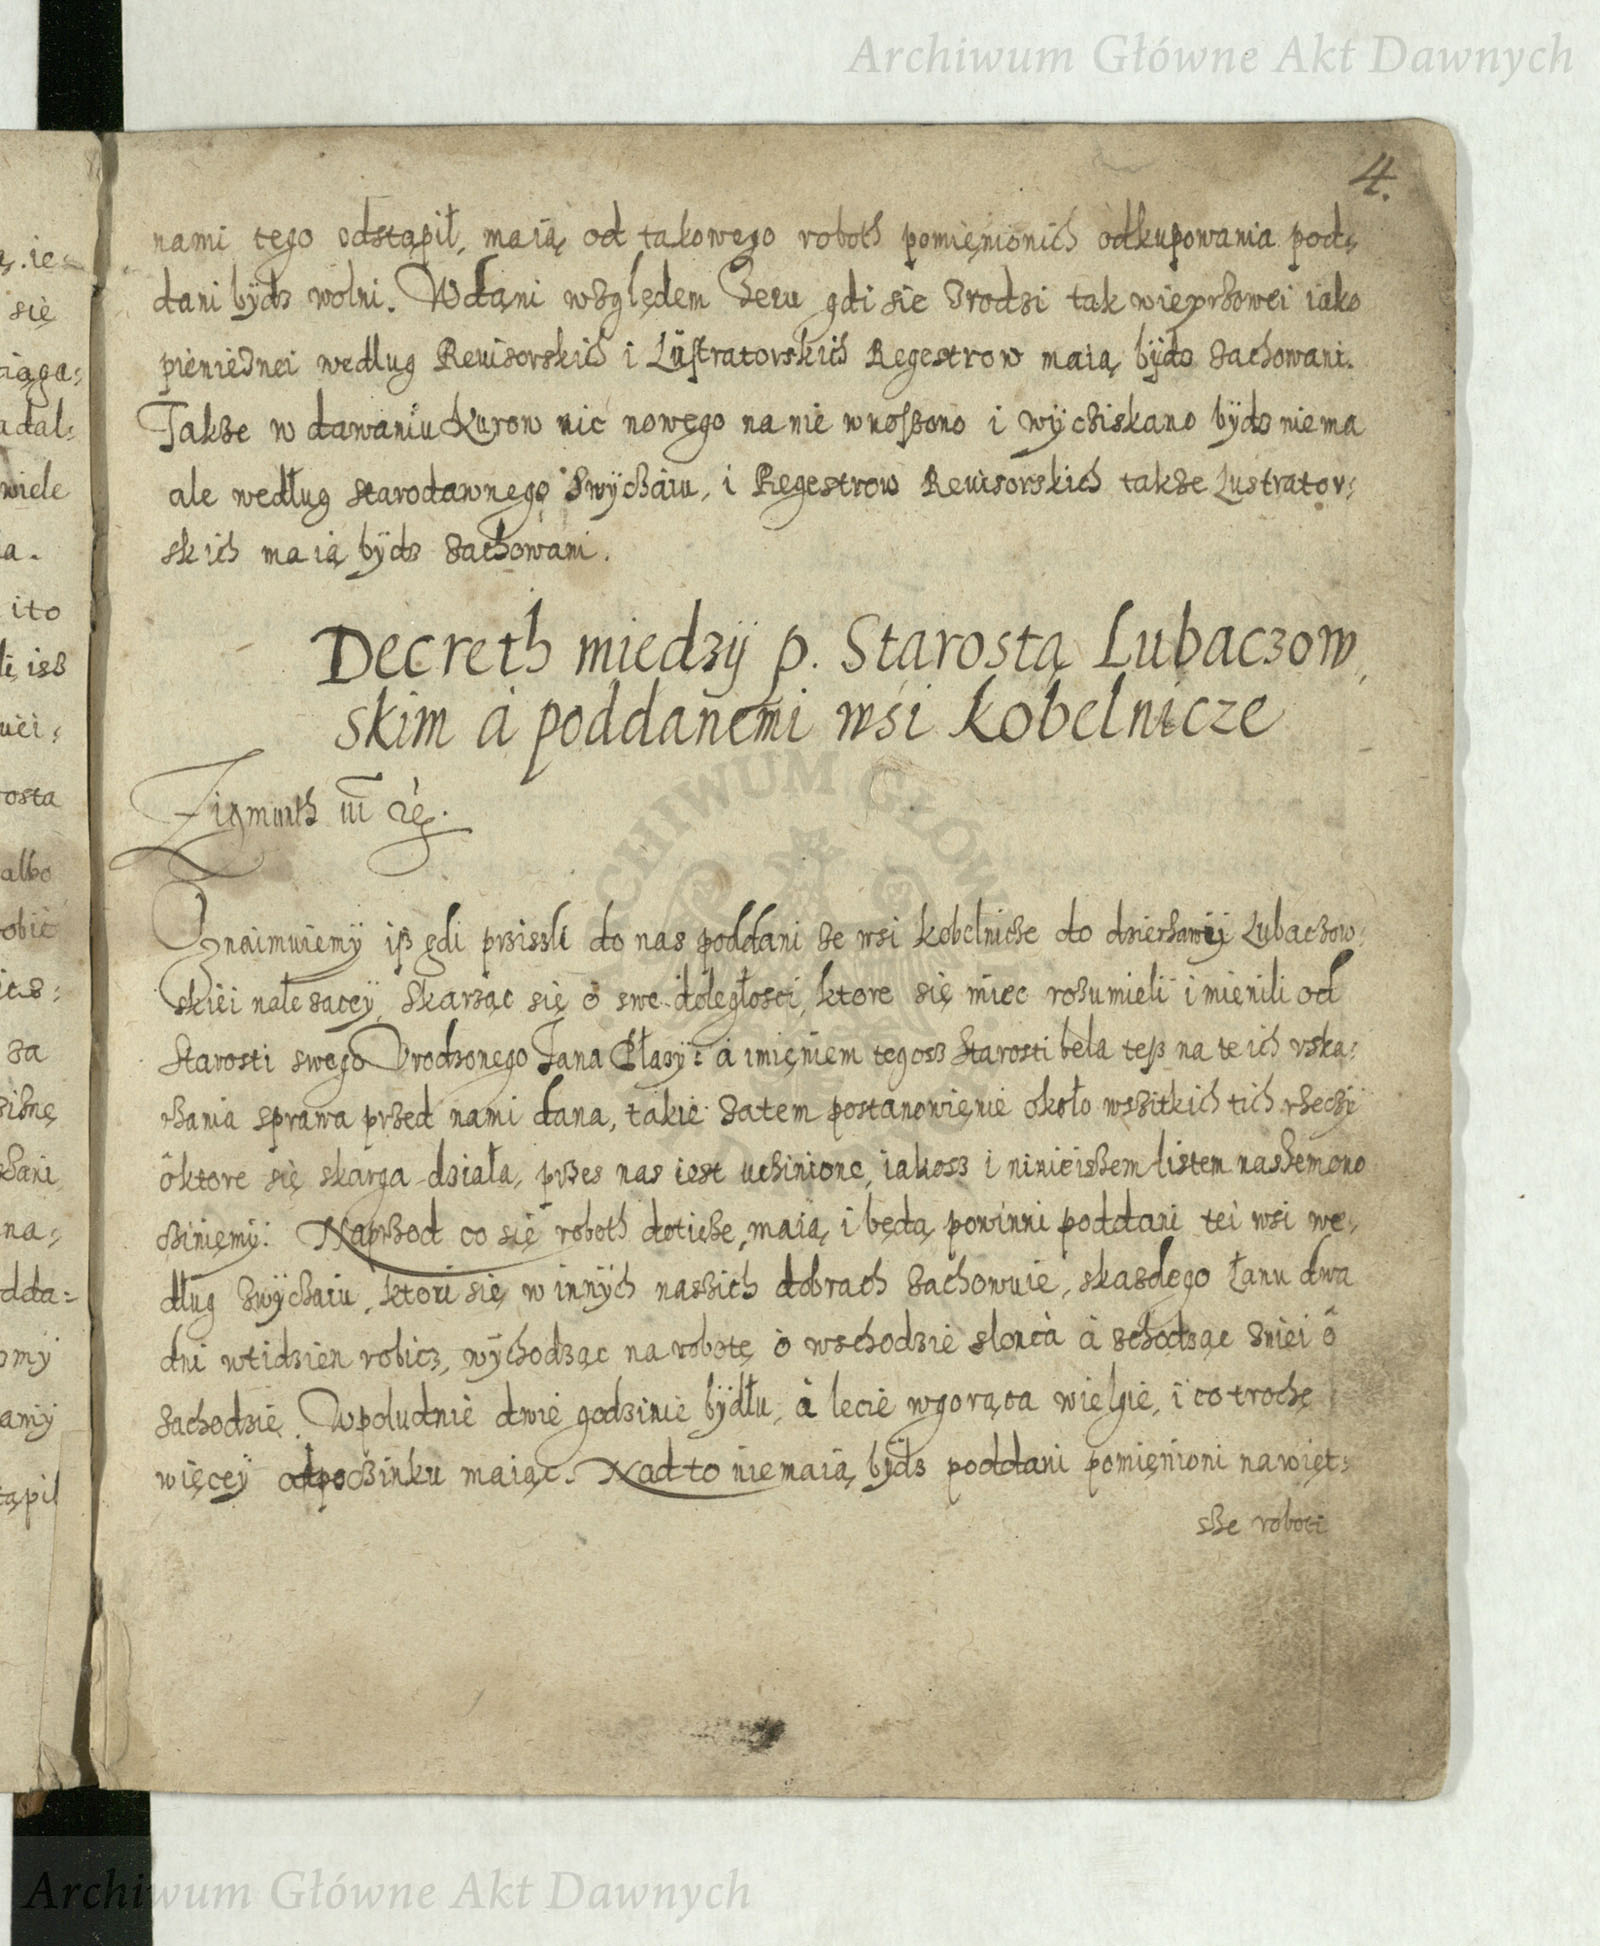 Archiwum Główne Akt Dawnych
4.
nami tego odstąpił, maią od takowego roboth pomięnionich odkupowania pod:
dani bÿdz wolni. Wdani względem żeru gdi sie zrodzi tak wieprzowei iako
pieniężnei wedlug Reuisorskich i Lustratorskich Regestrow maią bÿdz zachowani.
Takze w dawaniu Kurow nic nowego na nie wnoszono i wÿcziskano bÿdz niema
ale według starodawnego zwÿczaiu, i Regestrow Reuisorskich takze Lustrator:
skich maią bÿdz zachowani.
Decreth miedzÿ p. Starostą Lubaczow,
skim à poddanemi wsi Kobelnicze
Zigmunth III
Oznaimuiemÿ isz gdi prziszli do nas poddani ze wsi kobelnicze do dzierzawÿ Lubaczow:
skiei należaceÿ, skarząc się o swe dolęgłosci, ktore się miec rozumieli i mięnili od
Starosti swego Vrodzonego Jana Płazÿ: à imięniem tegosz Starosti bela tesz na te ich vska:
rzania sprawa przed nami dana, takie zatem postanowięnie około wszitkich tich rzeczÿ
o ktore się skarga działa, przes nas iest uczinione, iakosz i ninieiszem listem naszem ono
cziniemÿ: Naprzod co się roboth doticze, maią i będą powinni poddani tei wsi we:
dług zwÿczaiu, ktori się w innÿch naszich dobrach zachowuie, skazdego Łanu dwa
dni wtidzien robicz, wÿchodząc na robotę o wschodzie slonca à schodząc sniei o
zachodzie. Wpoludnie dwie godzinie bÿdłu, à lecie wgorąca wielgie, i co trochę
więceÿ odpoczinku maiąc. Nad to niemaią bÿdz poddani pomięnioni nawięt:
sze roboti
ą. ie
się
ciąga:
adal:
wiele
a.
i to
li, isz
uei:
osta
albo
obic
za
na:
dda:
omÿ
amÿ
tąpil
ARCHIWUM GŁÓWNE
Archiwum Główne Akt Dawnych